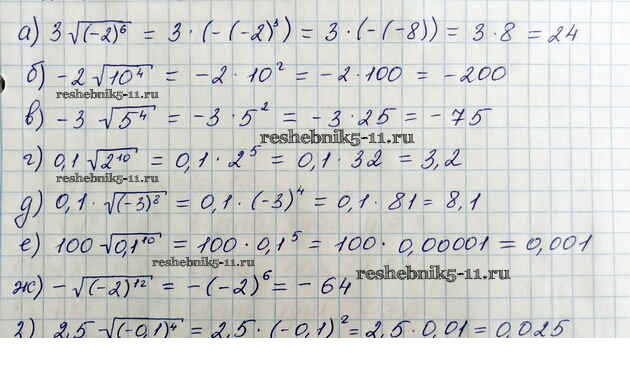 а) 3 √(-2)⁶ = 3 · (-(-2)³) = 3 · (-(-8)) = 3 · 8 = 24
б) -2 √10⁴ = -2 · 10² = -2 · 100 = -200
reshebnik5-11.ru
в) -3 √5⁴ = -3 · 5² = -3 · 25 = -75
reshebnik5-11.ru
г) 0,1 √2¹⁰ = 0,1 · 2⁵ = 0,1 · 32 = 3,2
reshebnik5-11.ru
д) 0,1 · √(-3)⁸ = 0,1 · (-3)⁴ = 0,1 · 81 = 8,1
е) 100 √0,1¹⁰ = 100 · 0,1⁵ = 100 · 0,00001 = 0,001
reshebnik5-11.ru
reshebnik5-11.ru
ж) -√(-2)¹² = -(-2)⁶ = -64
з) 2,5 √(-0,1)⁴ = 2,5 · (-0,1)² = 2,5 · 0,01 = 0,025